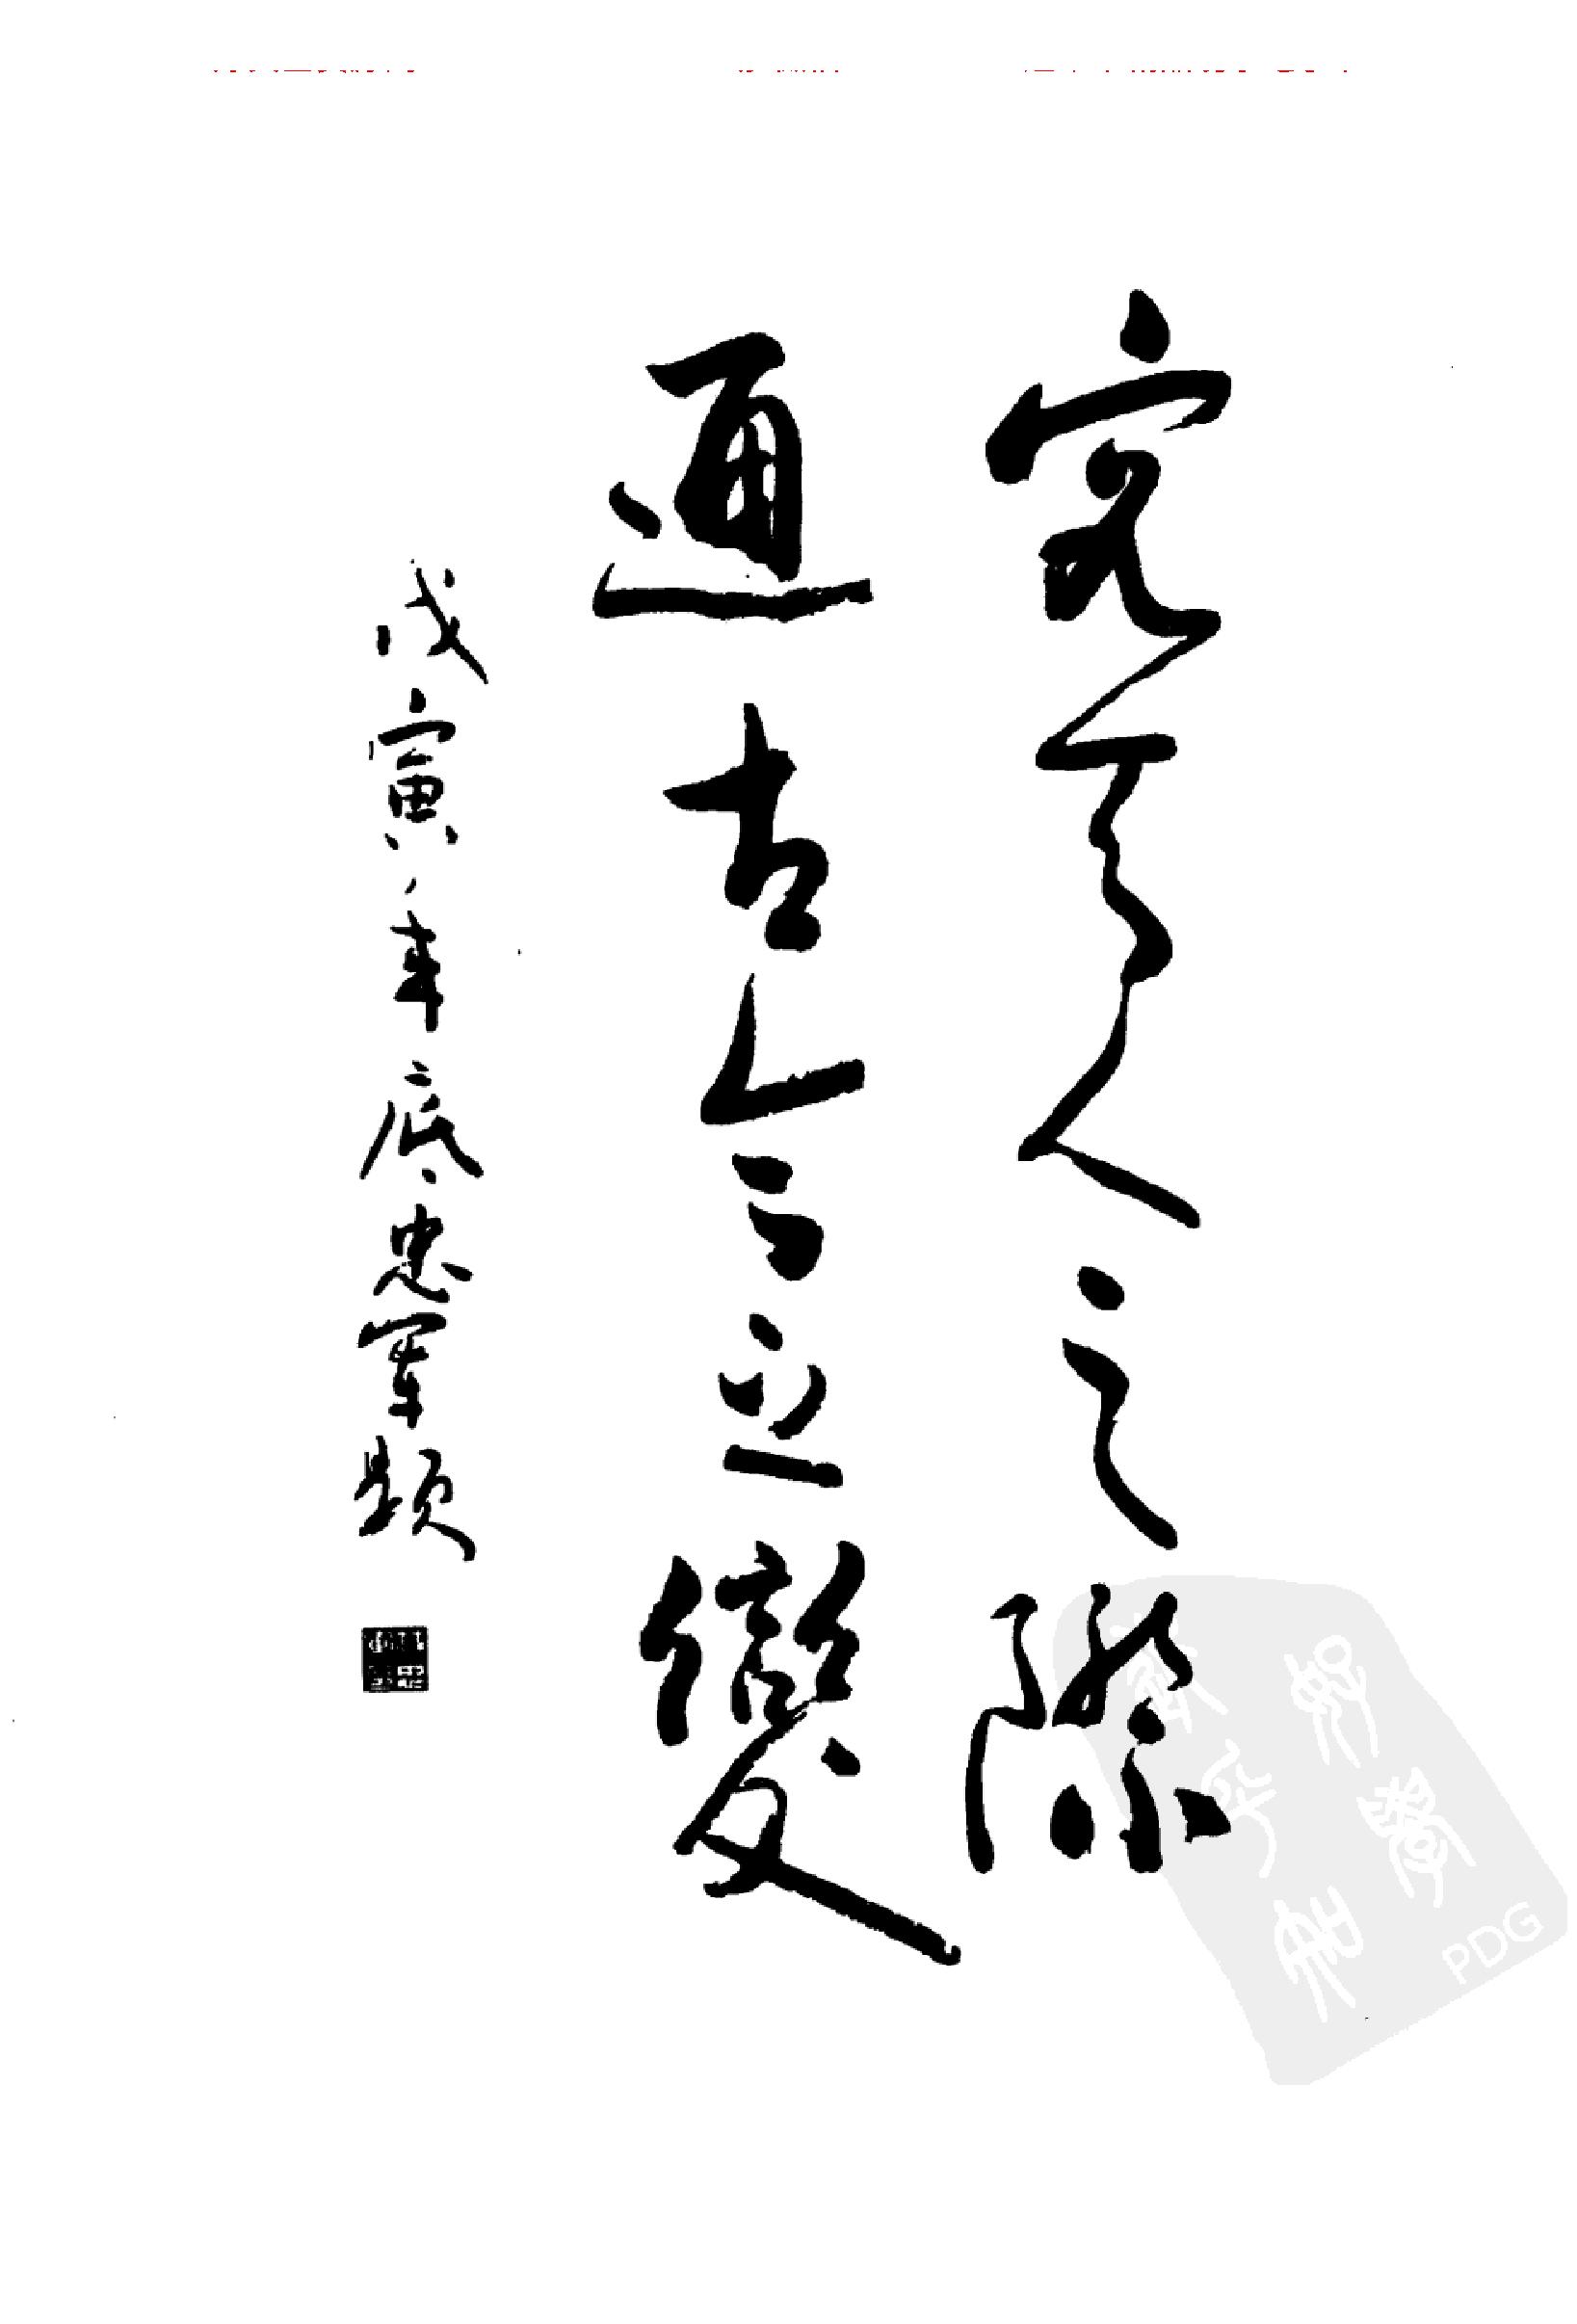 究天人之際
通古今之變
戊寅年底忠軍題
PDG